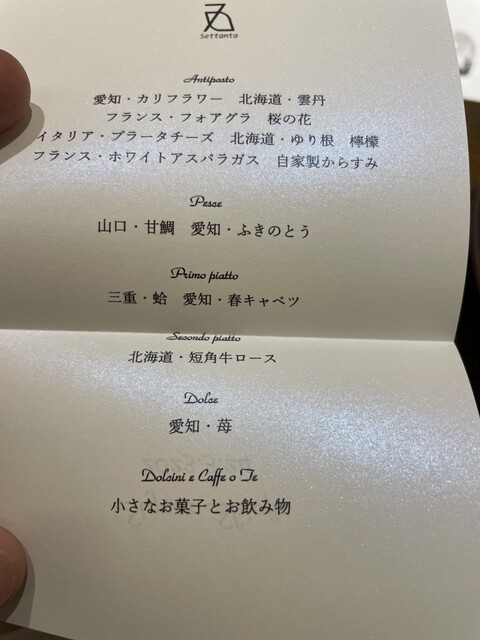 Settanta
Antipasto
愛知・カリフラワー　北海道・雲丹
フランス・フォアグラ　桜の花
イタリア・ブラータチーズ　北海道・ゆり根　檸檬
フランス・ホワイトアスパラガス　自家製からすみ
Pesce
山口・甘鯛　愛知・ふきのとう
Primo piatto
三重・蛤　愛知・春キャベツ
Secondo piatto
北海道・短角牛ロース
Dolce
愛知・苺
Dolcini e Caffe o Te
小さなお菓子とお飲み物